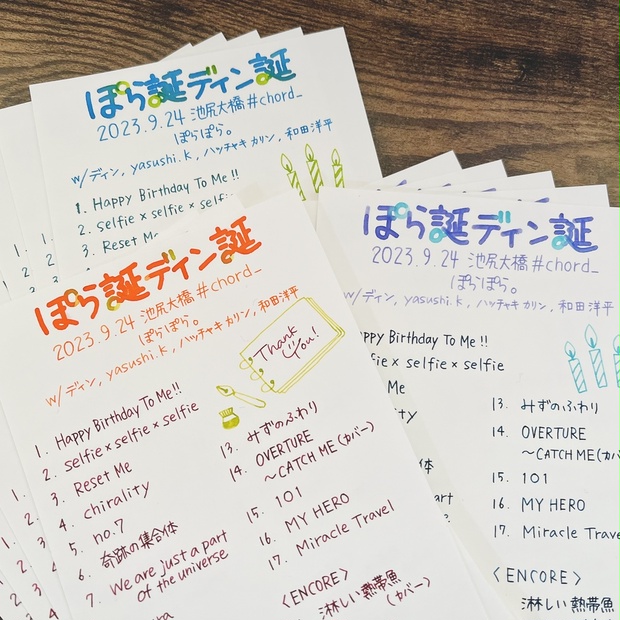 ぽら誕ディン誕
2023.9.24 池尻大橋#chord_
ぽらぽら。
w/ディン, yasushi.k, ハッチャキカリン, 和田洋平
1. Happy Birthday To Me!!
2. selfie × selfie × selfie
3. Reset Me
ぽら誕ディン誕
2023.9.24 池尻大橋#chord_
ぽらぽら。
w/ディン, yasushi.k, ハッチャキカリン, 和田洋平
Thank
You!
1. Happy Birthday To Me!!
2. selfie × selfie × selfie
3. Reset Me
4. chirality
5. no.7
6. 奇跡の集合体
7. We are just a part
of the universe
13. みずのふわり
14. OVERTURE
〜CATCH ME(カバー)
15. 101
16. MY HERO
17. Miracle Travel
〈ENCORE〉
淋しい熱帯魚
(カバー)
ぽら誕ディン誕
2023.9.24 池尻大橋#chord_
ぽらぽら。
w/ディン, yasushi.k, ハッチャキカリン, 和田洋平
appy Birthday To Me!!
fie × selfie × selfie
Me
rality
体
part
rse
13. みずのふわり
14. OVERTURE
〜CATCH ME(カバ
15. 101
16. MY HERO
17. Miracle Trave
〈ENCORE〉
淋しい熱帯魚